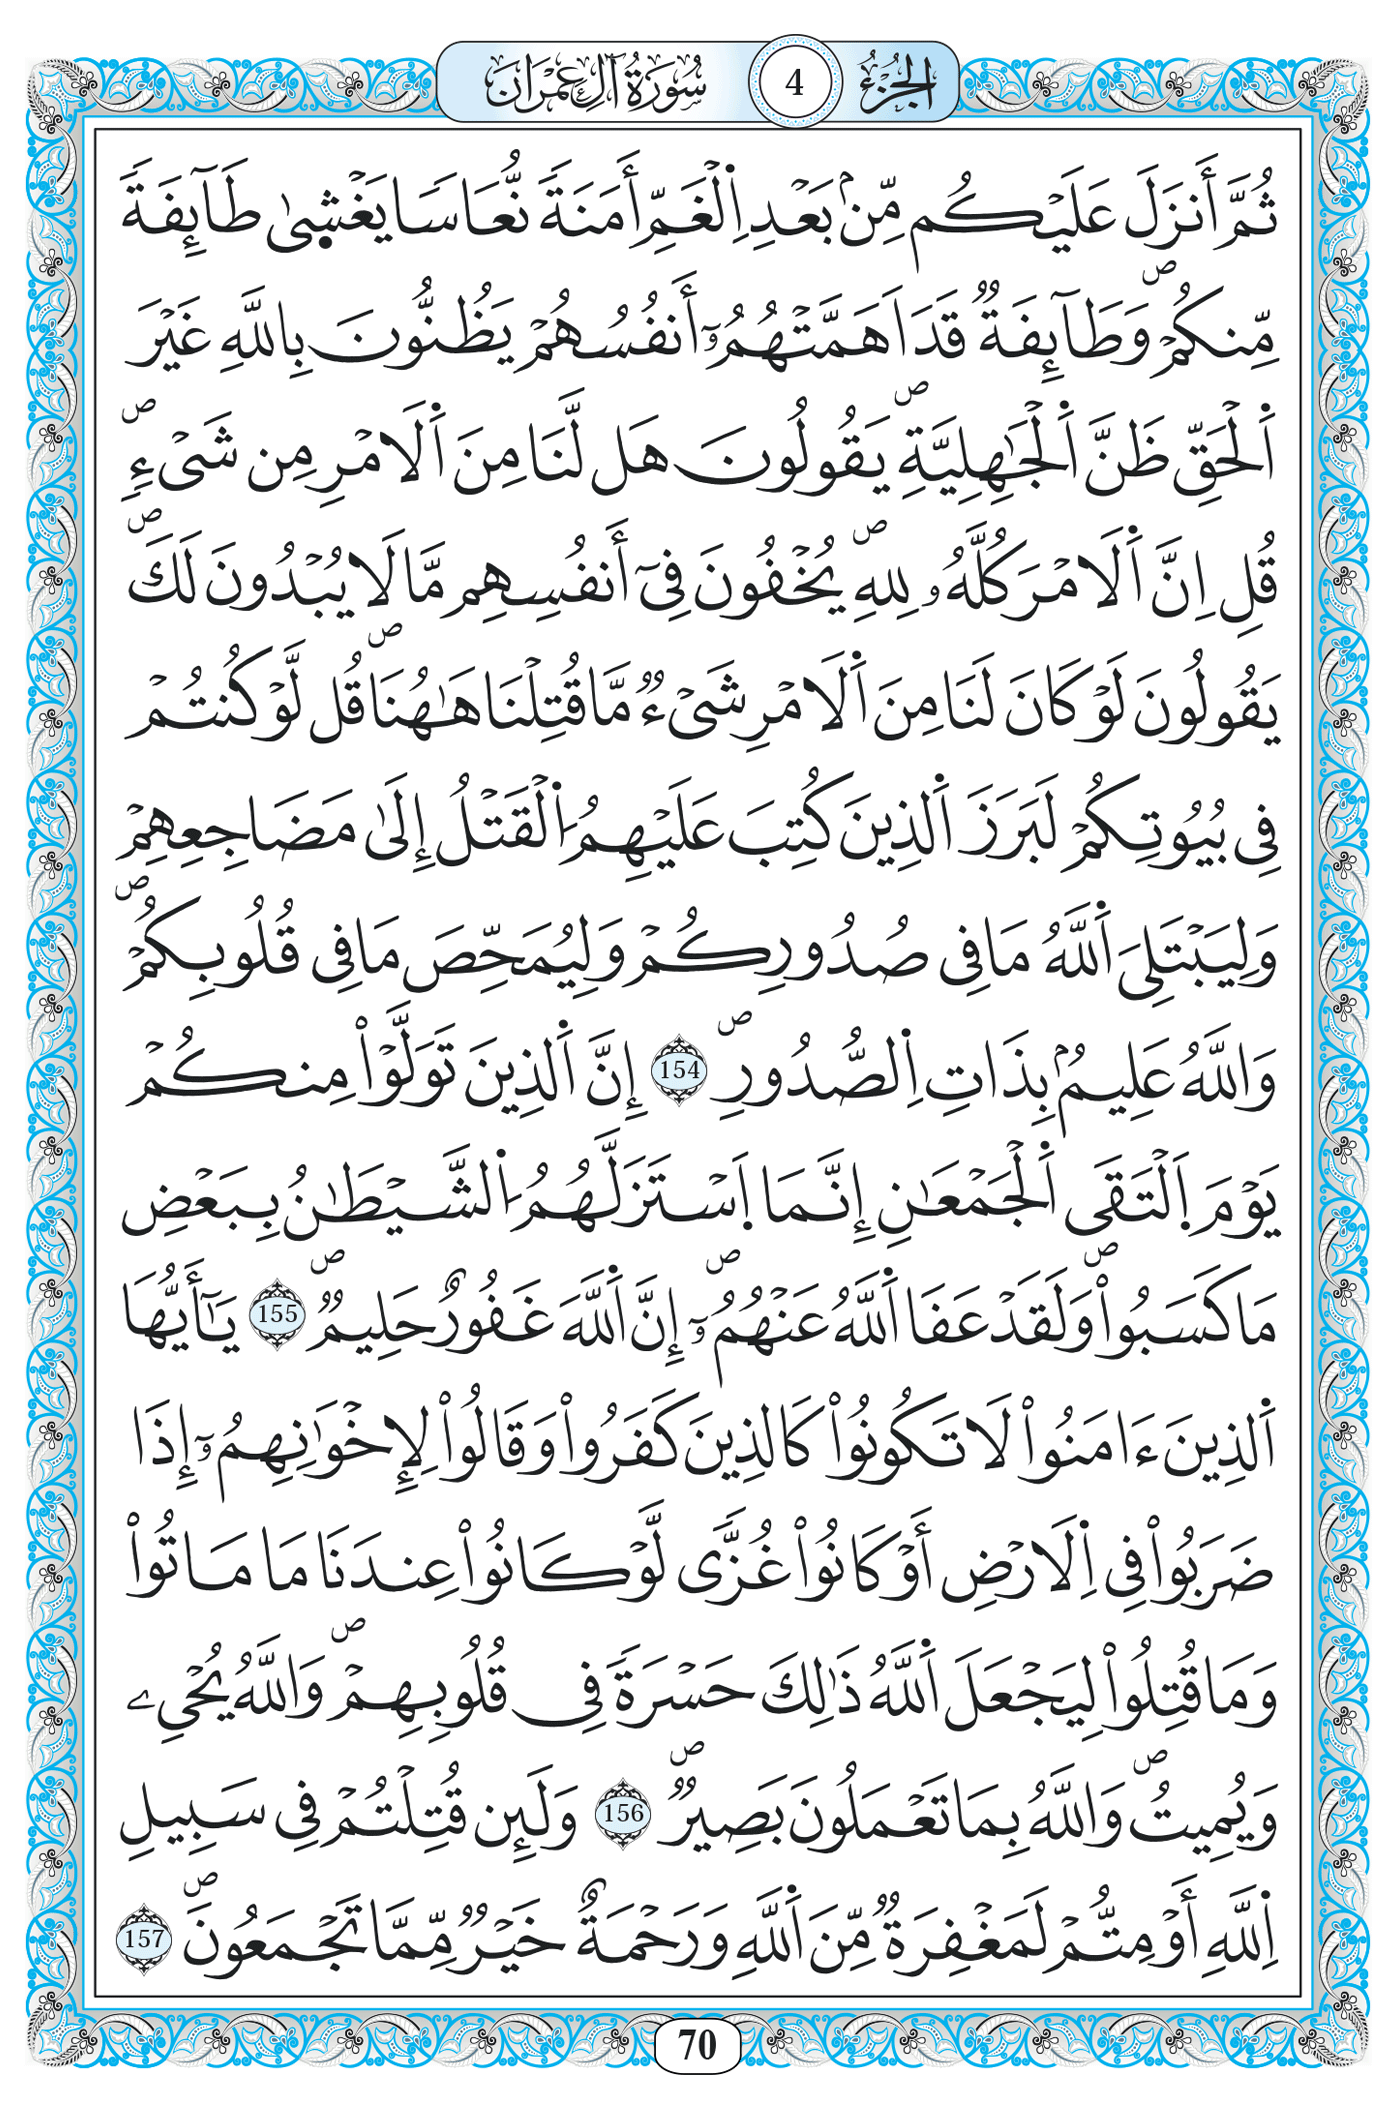 الجُزْءُ 4 سُورَةُ آلِ عِمْرَانَ
ثُمَّ أَنزَلَ عَلَيْكُم مِّنۢ بَعْدِ اِ۬لْغَمِّ أَمَنَةٗ نُّعَاسٗا يَغْش۪ىٰ طَآئِفَةٗ
مِّنكُمْۖ وَطَآئِفَةٞ قَدَ اَهَمَّتْهُمُۥٓ أَنفُسُهُمْ يَظُنُّونَ بِاللَّهِ غَيْرَ
اَ۬لْحَقِّ ظَنَّ اَ۬لْجَٰهِلِيَّةِۖ يَقُولُونَ هَل لَّنَا مِنَ اَ۬لَامْرِ مِن شَےْءٖۖ
قُلِ اِنَّ اَ۬لَامْرَ كُلَّهُۥ لِلهِۖ يُخْفُونَ فِےٓ أَنفُسِهِم مَّا لَا يُبْدُونَ لَكَۖ
يَقُولُونَ لَوْ كَانَ لَنَا مِنَ اَ۬لَامْرِ شَےْءٞ مَّا قُتِلْنَا هَٰهُنَاۖ قُل لَّوْ كُنتُمْ
فِے بُيُوتِكُمْ لَبَرَزَ اَ۬لذِينَ كُتِبَ عَلَيْهِمُ اُ۬لْقَتْلُ إِلَىٰ مَضَاجِعِهِمْ
وَلِيَبْتَلِيَ اَ۬للَّهُ مَا فِے صُدُورِكُمْ وَلِيُمَحِّصَ مَا فِے قُلُوبِكُمْۖ
وَاللَّهُ عَلِيمُۢ بِذَاتِ اِ۬لصُّدُورِۖ 154 إِنَّ اَ۬لذِينَ تَوَلَّوْاْ مِنكُمْ
يَوْمَ اَ۪لْتَقَى اَ۬لْجَمْعَٰنِ إِنَّمَا اَ۪سْتَزَلَّهُمُ اُ۬لشَّيْطَٰنُ بِبَعْضِ
مَا كَسَبُواْۖ وَلَقَدْ عَفَا اَ۬للَّهُ عَنْهُمُۥٓۖ إِنَّ اَ۬للَّهَ غَفُورٌ حَلِيمٞۖ 155 يَٰٓأَيُّهَا
اَ۬لذِينَ ءَامَنُواْ لَا تَكُونُواْ كَالذِينَ كَفَرُواْ وَقَالُواْ لِإِخْوَٰنِهِمُۥٓ إِذَا
ضَرَبُواْ فِے اِ۬لَارْضِ أَوْ كَانُواْ غُزّٗى لَّوْ كَانُواْ عِندَنَا مَا مَاتُواْ
وَمَا قُتِلُواْ لِيَجْعَلَ اَ۬للَّهُ ذَٰلِكَ حَسْرَةٗ فِے قُلُوبِهِمْۖ وَاللَّهُ يُحْيِۦ
وَيُمِيتُۖ وَاللَّهُ بِمَا تَعْمَلُونَ بَصِيرٞۖ 156 وَلَئِن قُتِلْتُمْ فِے سَبِيلِ
اِ۬للَّهِ أَوْ مِتُّمْ لَمَغْفِرَةٞ مِّنَ اَ۬للَّهِ وَرَحْمَةٌ خَيْرٞ مِّمَّا تَجْمَعُونَۖ 157
70